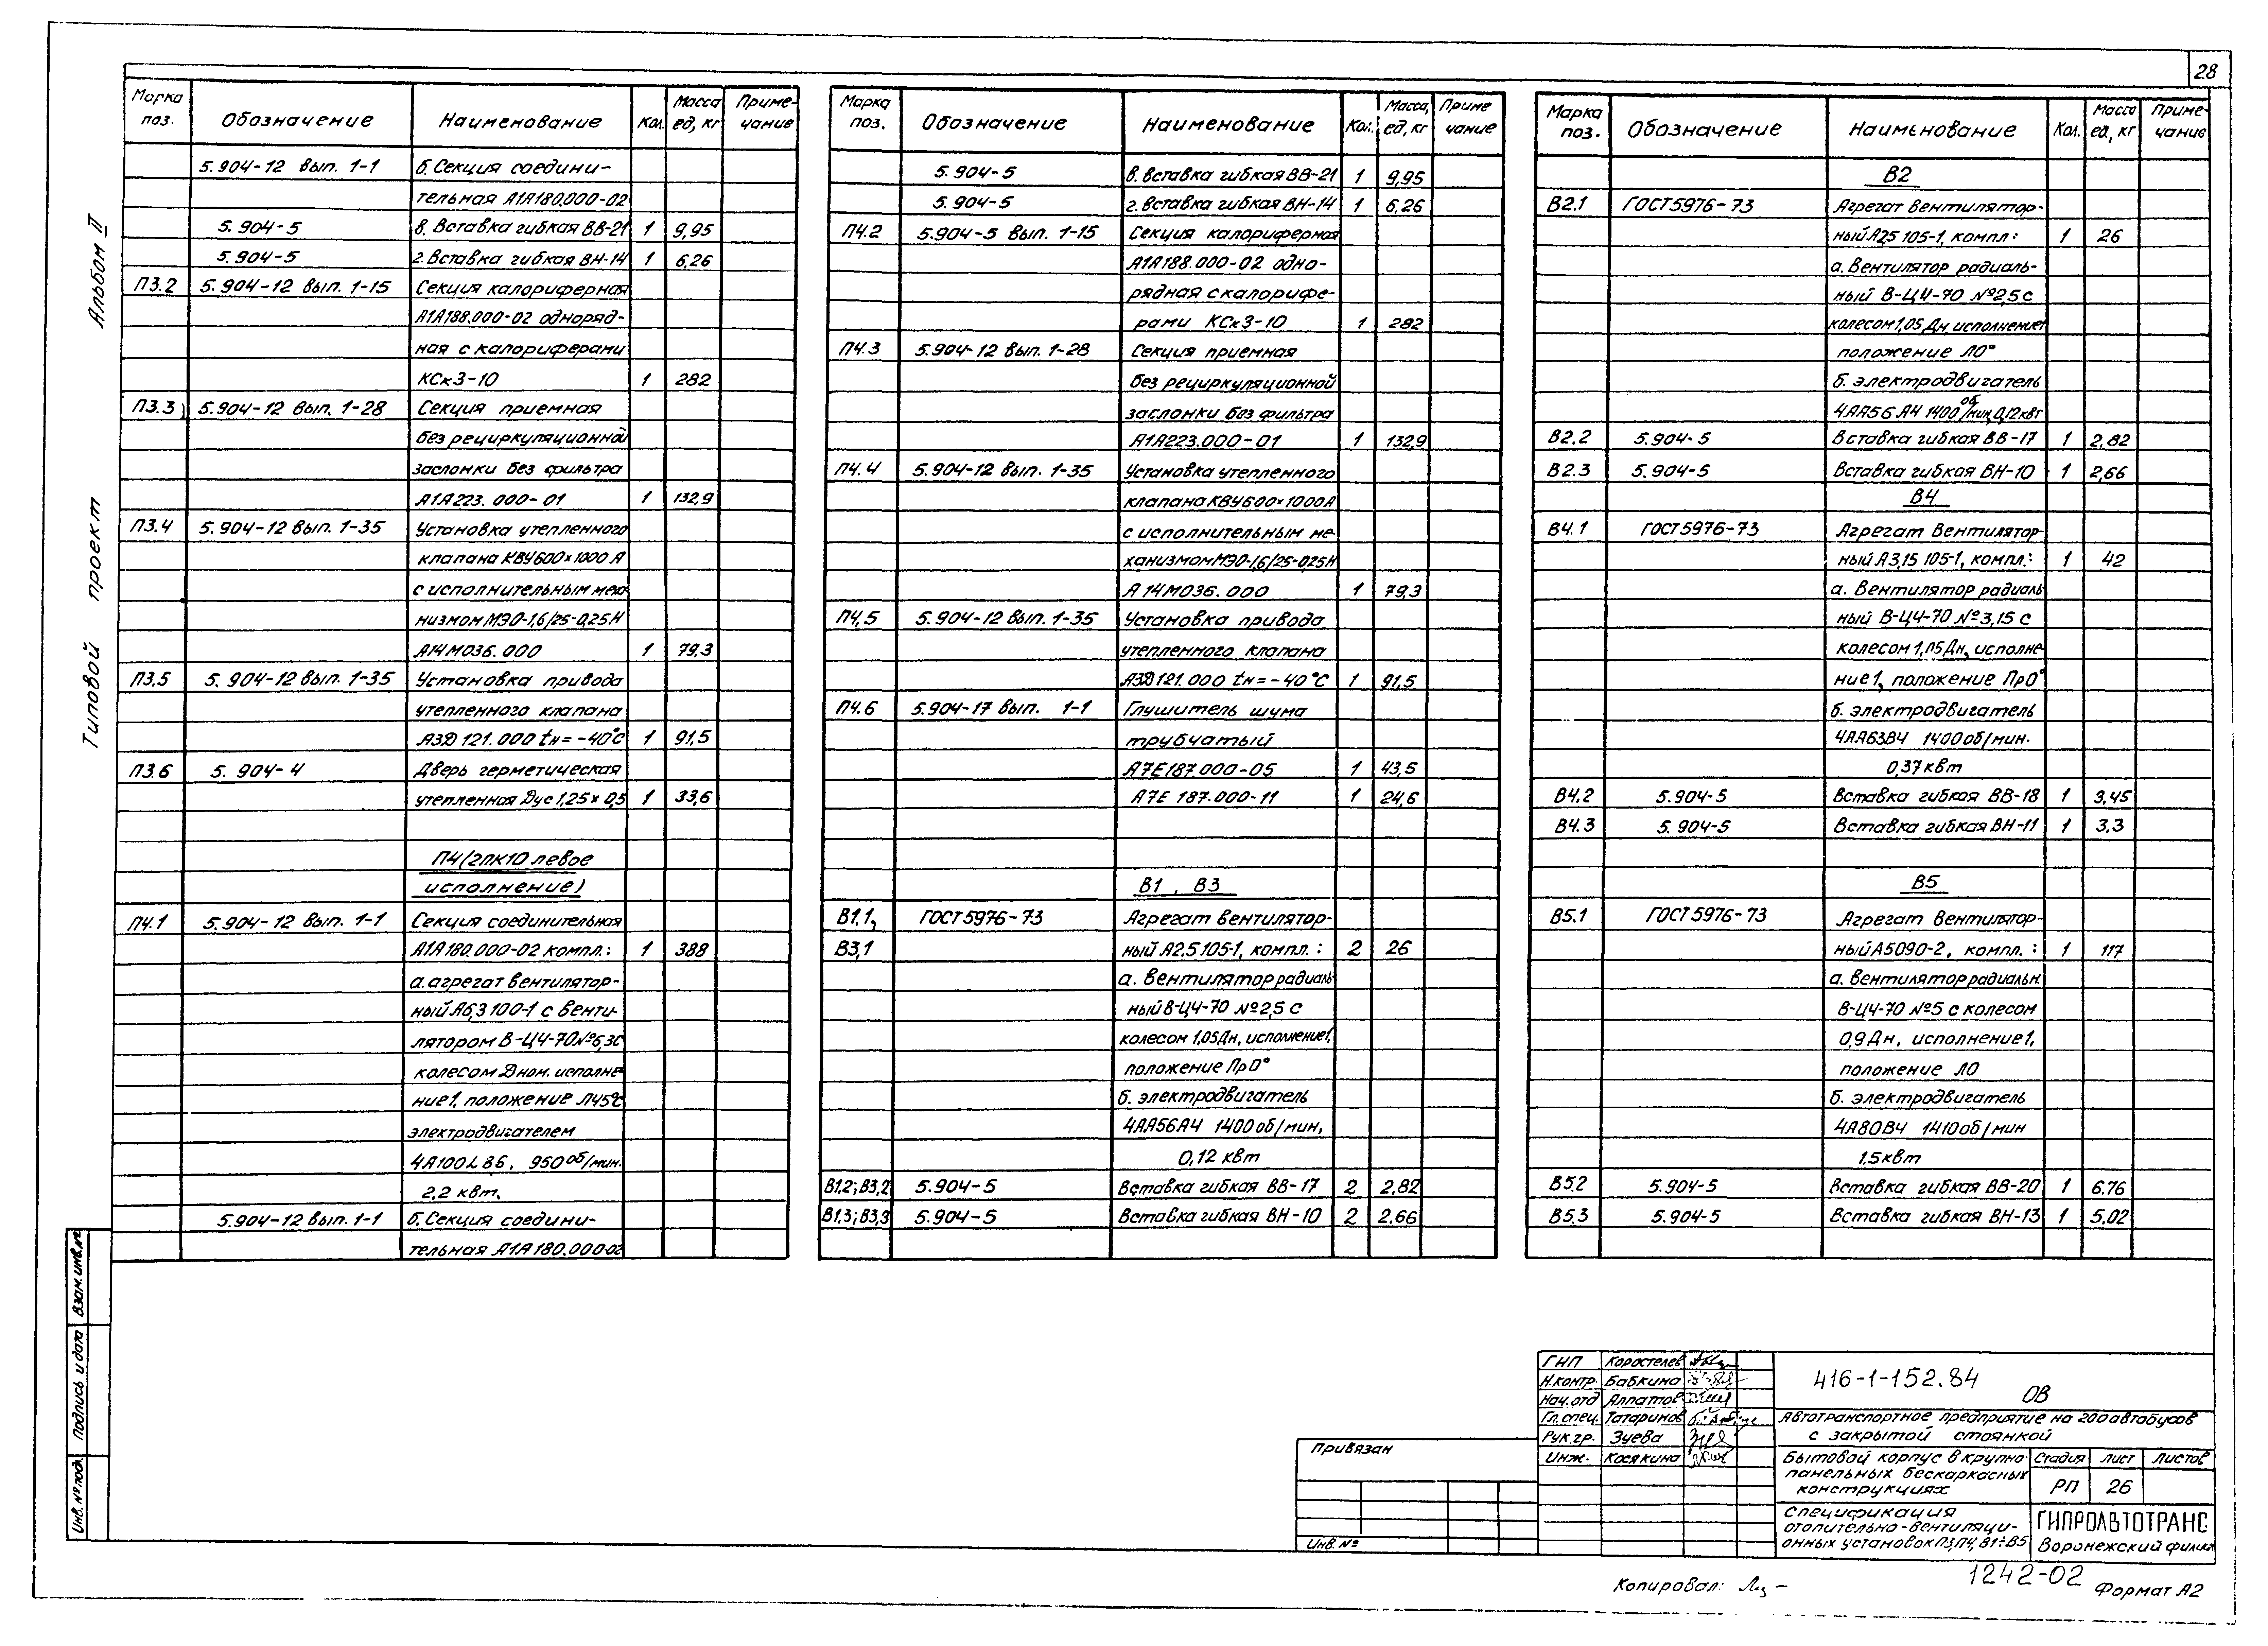 28
Альбом II
Типовой проект
Марка поз. Обозначение Наименование Кол. Масса ед, кг Приме-чание
5.904-12 вып. 1-1 б. Секция соедини-
тельная А1А180.000-02
5.904-5 в. Вставка гибкая ВВ-21 1 9,95
5.904-5 г. Вставка гибкая ВН-14 1 6,26
П3.2 5.904-12 вып. 1-15 Секция калориферная
А1А188.000-02 одноряд-
ная с калориферами
КСк3-10 1 282
П3.3 5.904-12 вып. 1-28 Секция приемная
без рециркуляционной
заслонки без фильтра
А1А223.000-01 1 132,9
П3.4 5.904-12 вып. 1-35 Установка утепленного
клапана КВУ600х1000 А
с исполнительным меха-
низмом МЭО-1,6/25-0,25Н
А14М036.000 1 79,3
П3.5 5.904-12 вып. 1-35 Установка привода
утепленного клапана
А3Д121.000 tн=-40°С 1 91,5
П3.6 5.904-4 Дверь герметическая
утепленная Дус1,25х0,5 1 33,6
П4(2ПК10 левое
исполнение)
П4.1 5.904-12 вып. 1-1 Секция соединительная
А1А180.000-02 компл.: 1 388
а. агрегат вентилятор-
ный А6,3100-1 с венти-
лятором В-Ц4-70№6,3С
колесом Дном. исполне-
ние1, положение Л45°с
электродвигателем
4А100L86, 950об/мин.
2,2 квт.
5.904-12 вып. 1-1 б. Секция соедини-
тельная А1А180.000-02
Марка поз. Обозначение Наименование Кол. Масса, ед, кг Приме чание
5.904-5 в. Вставка гибкая ВВ-21 1 9,95
5.904-5 г. Вставка гибкая ВН-14 1 6,26
П4.2 5.904-5 вып. 1-15 Секция калориферная
А1А188.000-02 одно-
рядная с калорифе-
рами КСк3-10 1 282
П4.3 5.904-12 вып. 1-28 Секция приемная
без рециркуляционной
заслонки без фильтра
А1А223.000-01 1 132,9
П4.4 5.904-12 вып. 1-35 Установка утепленного
клапана КВУ600х1000А
с исполнительным ме-
ханизмом МЭО-1,6/25-0,25Н
А14М036.000 1 79,3
П4,5 5.904-12 вып. 1-35 Установка привода
утепленного клапана
А3Д121.000 tн=-40°С 1 91,5
П4.6 5.904-17 вып. 1-1 Глушитель шума
трубчатый
А7Е187.000-05 1 43,5
А7Е 187.000-11 1 24,6
В1, В3
В1.1, ГОСТ5976-73 Агрегат вентилятор-
В3,1 ный А2.5105-1, компл.: 2 26
а. Вентилятор радиаль-
ный В-Ц4-70 №2,5 с
колесом 1,05Дн, исполнение1,
положение Пр0°
б. электродвигатель
4АА56А4 1400об/мин,
0,12 квт
В1.2; В3,2 5.904-5 Вставка гибкая ВВ-17 2 2,82
В1.3; В3,3 5.904-5 Вставка гибкая ВН-10 2 2.66
Марка поз. Обозначение Наименование Кол. Масса ед., кг Приме-чание
В2
В2.1 ГОСТ5976-73 Агрегат вентилятор-
ный А2,5 105-1, компл: 1 26
а. Вентилятор радиаль-
ный В-Ц4-70 №2,5 с
колесом 1,05 Дн, исполнение1
положение Л0°
б. электродвигатель
4АА56А4 1400об/мин,0,12квт
В2,2 5.904-5 Вставка гибкая ВВ-17 1 2,82
В2.3 5.904-5 Вставка гибкая ВН-10 1 2,66
В4
В4.1 ГОСТ5976-73 Агрегат вентилятор-
ный А3,15 105-1, компл.: 1 42
а. Вентилятор радиаль
ный В-Ц4-70 №3,15 с
колесом 1,05Дн, исполне-
ние1, положение Пр0°
б. электродвигатель
4АА63В4 1400об/мин.
0,37квт
В4.2 5.904-5 Вставка гибкая ВВ-18 1 3,45
В4.3 5.904-5 Вставка гибкая ВН-11 1 3,3
В5
В5.1 ГОСТ5976-73 Агрегат вентилятор-
ный А5090-2, компл.: 1 117
а. вентилятор радиальн.
В-Ц4-70 №5 с колесом
0,9Дн, исполнение1,
положение Л0
б. электродвигатель
4А80В4 1410об/мин
1.5квт
В5,2 5.904-5 Вставка гибкая ВВ-20 1 6.76
В5.3 5.904-5 Вставка гибкая ВН-13 1 5,02
Взам. инв.№
Подпись и дата
Инв. №подл.
Привязан
Инв. №
ГИП Коростелев
Н.контр. Бабкина
Нач.отд Алпатов
Гл.спец. Татаринов
Рук.гр. Зуева
Инж. Косякина
416-1-152.84 ОВ
Автотранспортное предприятие на 200 автобусов
с закрытой стоянкой
Бытовой корпус в крупно-
панельных бескаркасных
конструкциях
Стадия Лист Листов
РП 26
Спецификация
отопительно-вентиляци-
онных установок П3,П4, В1÷В5
ГИПРОАВТОТРАНС
Воронежский филиал
Копировал:
1242-02
Формат А2